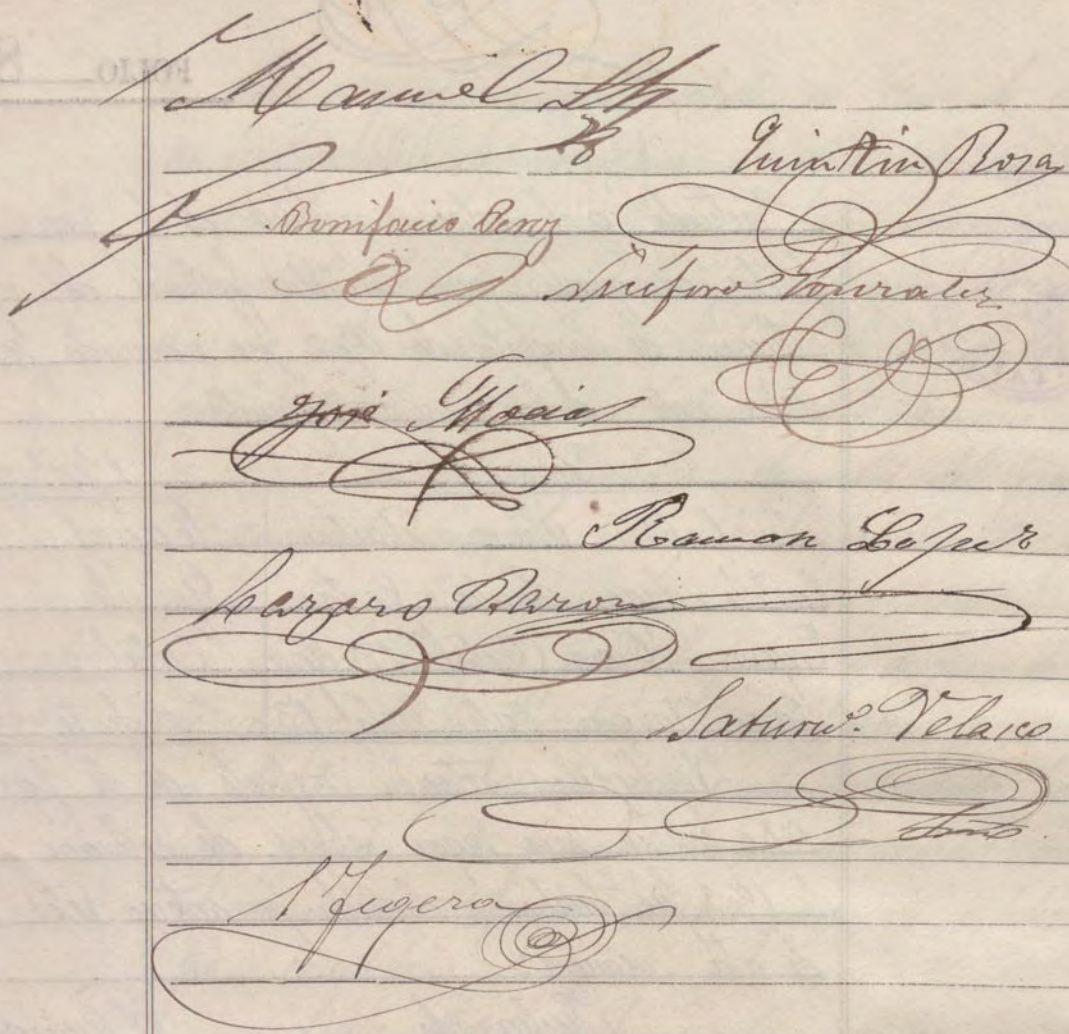 Manuel
Quintin Rosa
Bonifacio Perez
Niceforo Gonzalez
José Macias
Ramon Lopez
Lazaro Baron
Saturno. Velasco
Srio.